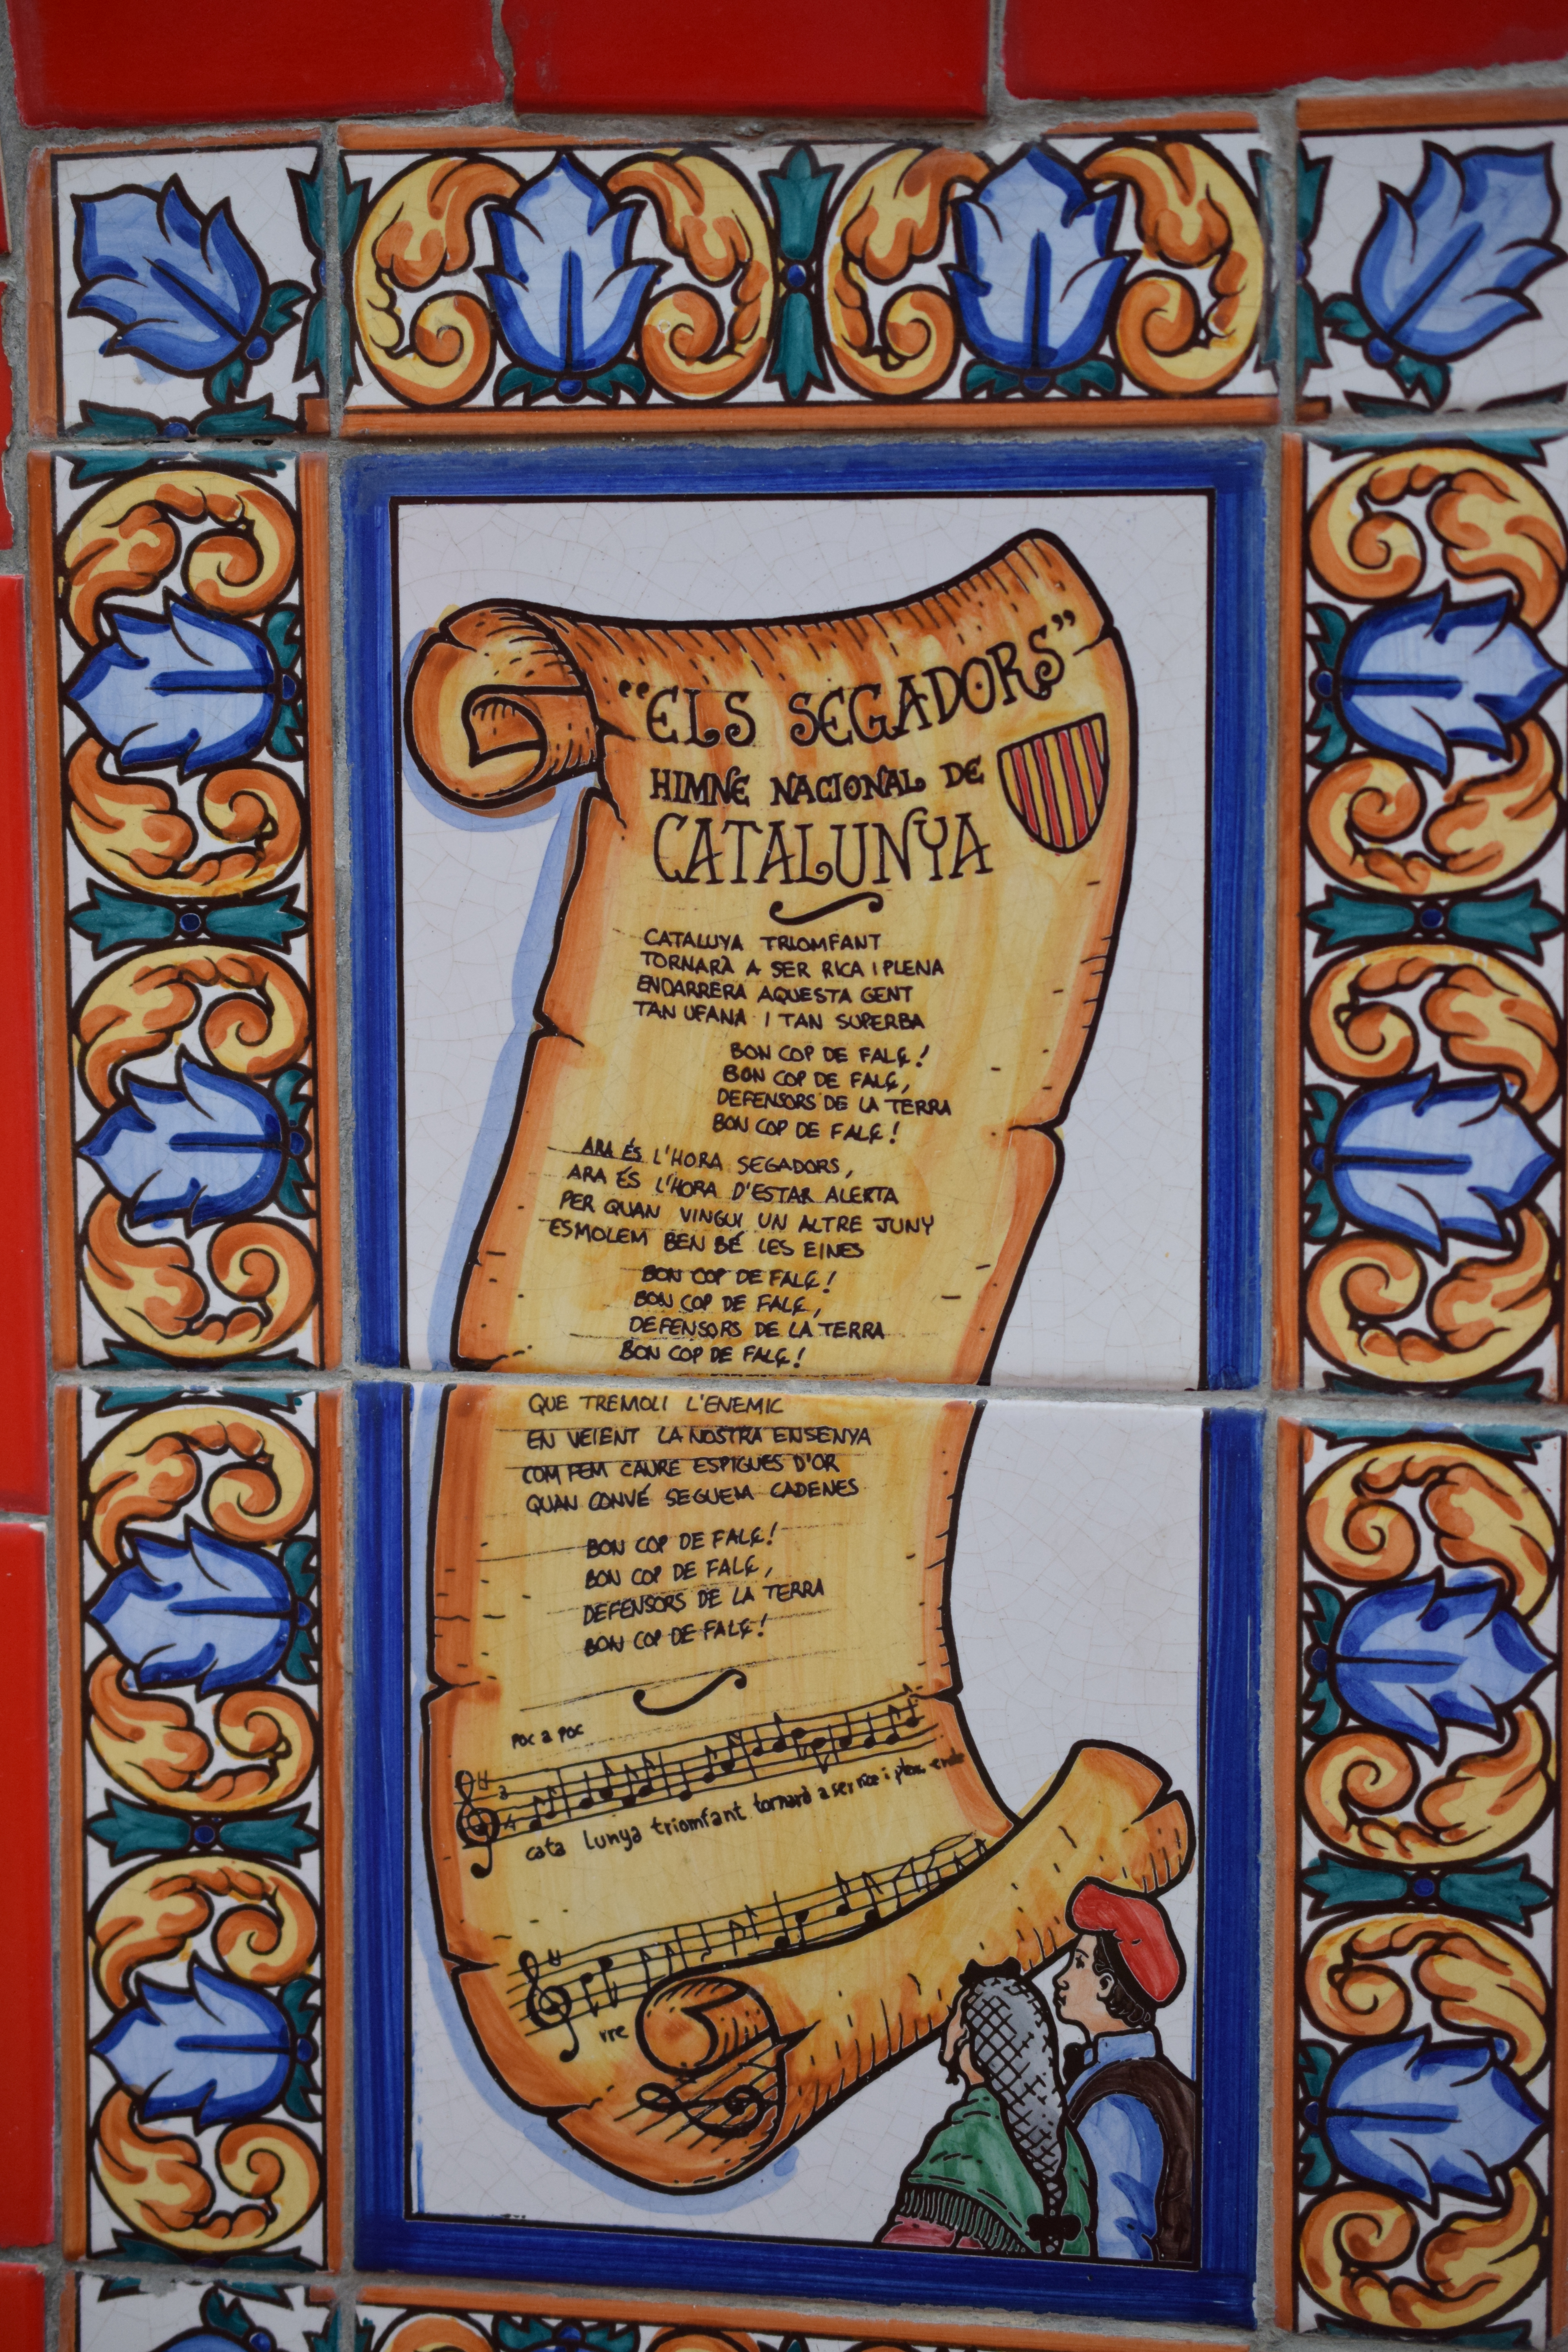 "ELS SEGADORS"
HIMNE NACIONAL DE
CATALUNYA
CATALUYA TRIOMFANT
TORNARÀ A SER RICA I PLENA
ENDARRERA AQUESTA GENT
TAN UFANA I TAN SUPERBA
BON COP DE FALÇ!
BON COP DE FALÇ,
DEFENSORS DE LA TERRA
BON COP DE FALÇ!
ARA ÉS L'HORA SEGADORS,
ARA ÉS L'HORA D'ESTAR ALERTA
PER QUAN VINGUI UN ALTRE JUNY
ESMOLEM BEN BÉ LES EINES
BON COP DE FALÇ!
BON COP DE FALÇ,
DEFENSORS DE LA TERRA
BON COP DE FALÇ!
QUE TREMOLI L'ENEMIC
EN VEIENT LA NOSTRA ENSENYA
COM FEM CAURE ESPIGUES D'OR
QUAN CONVÉ SEGUEM CADENES
BON COP DE FALÇ!
BON COP DE FALÇ,
DEFENSORS DE LA TERRA
BON COP DE FALÇ!
poc a poc
3
4
cata lunya triomfant tornarà a ser rica i plena enda
rre